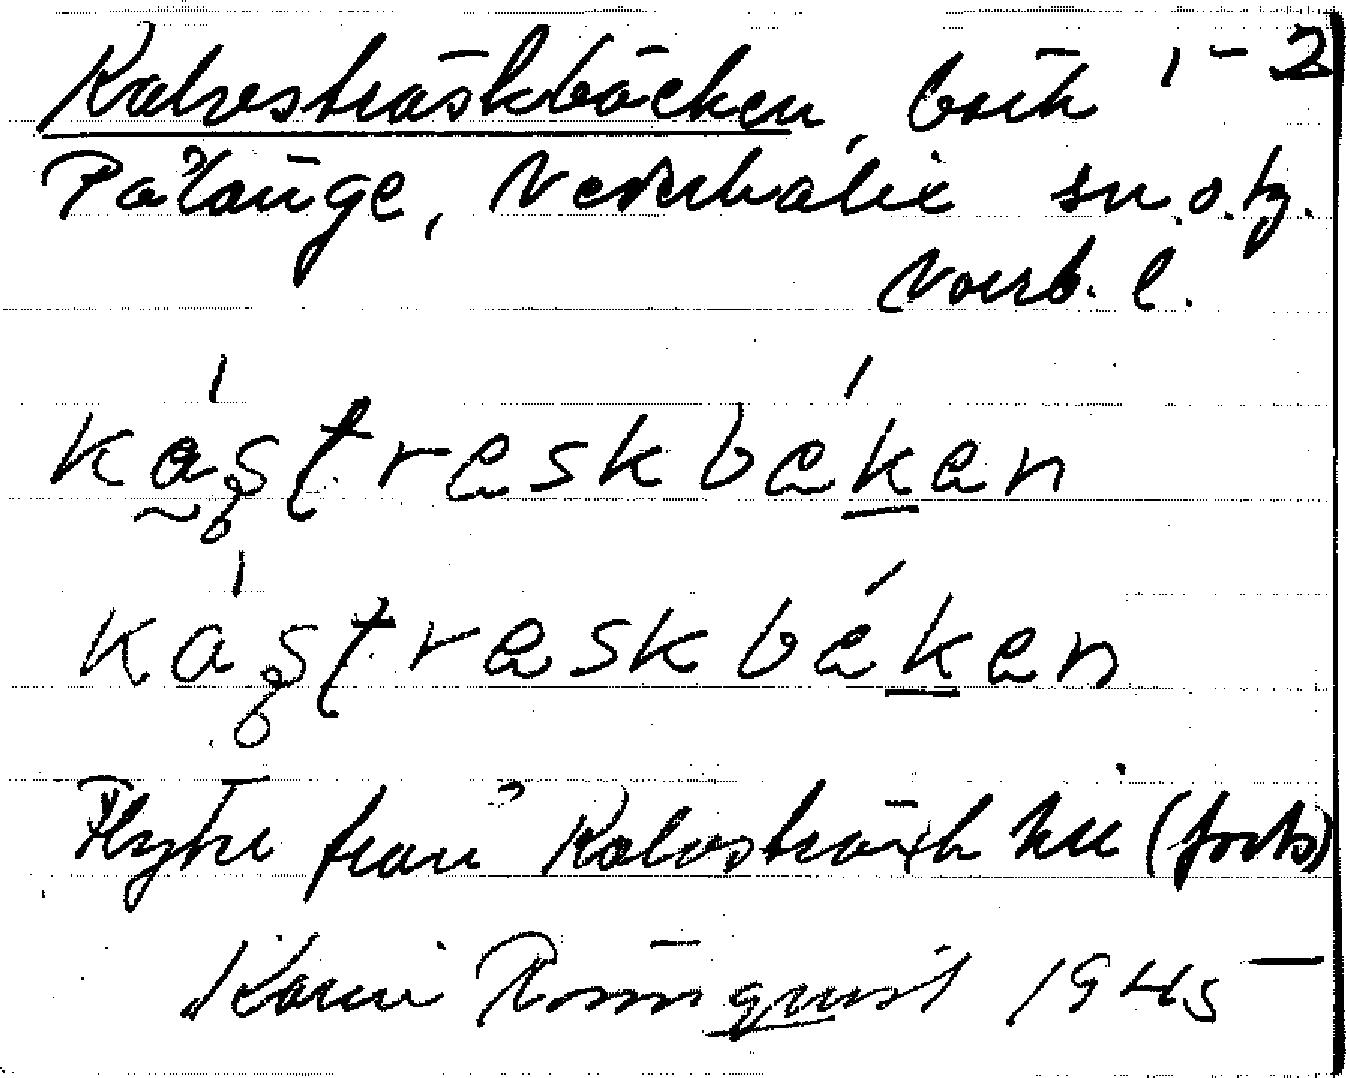 Kalvesträskbäcken, bäck 1-2
Pålänge, Nederkalix sn o. tg.
Norrb. l.
kastreskbeken
kastreskbeken
Flyter från Kalvsträsk till (forts)
Karin Rönnqvist 1945